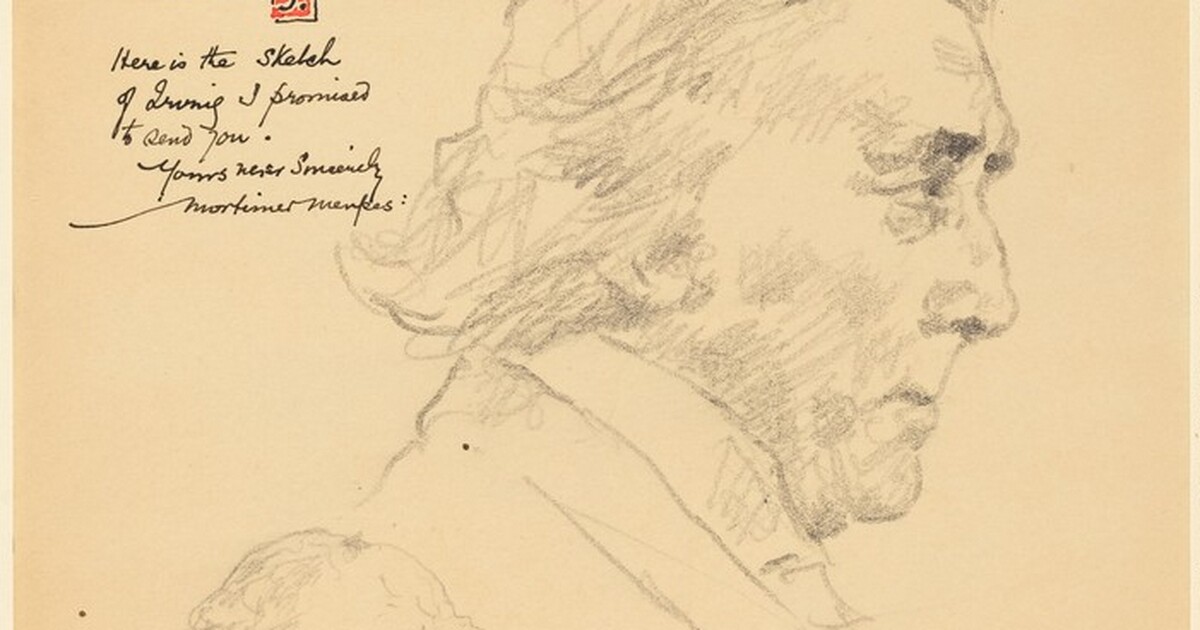 Here is the Sketch
of Irving I promised
to send you.
Yours very Sincerely
Mortimer Menpes: